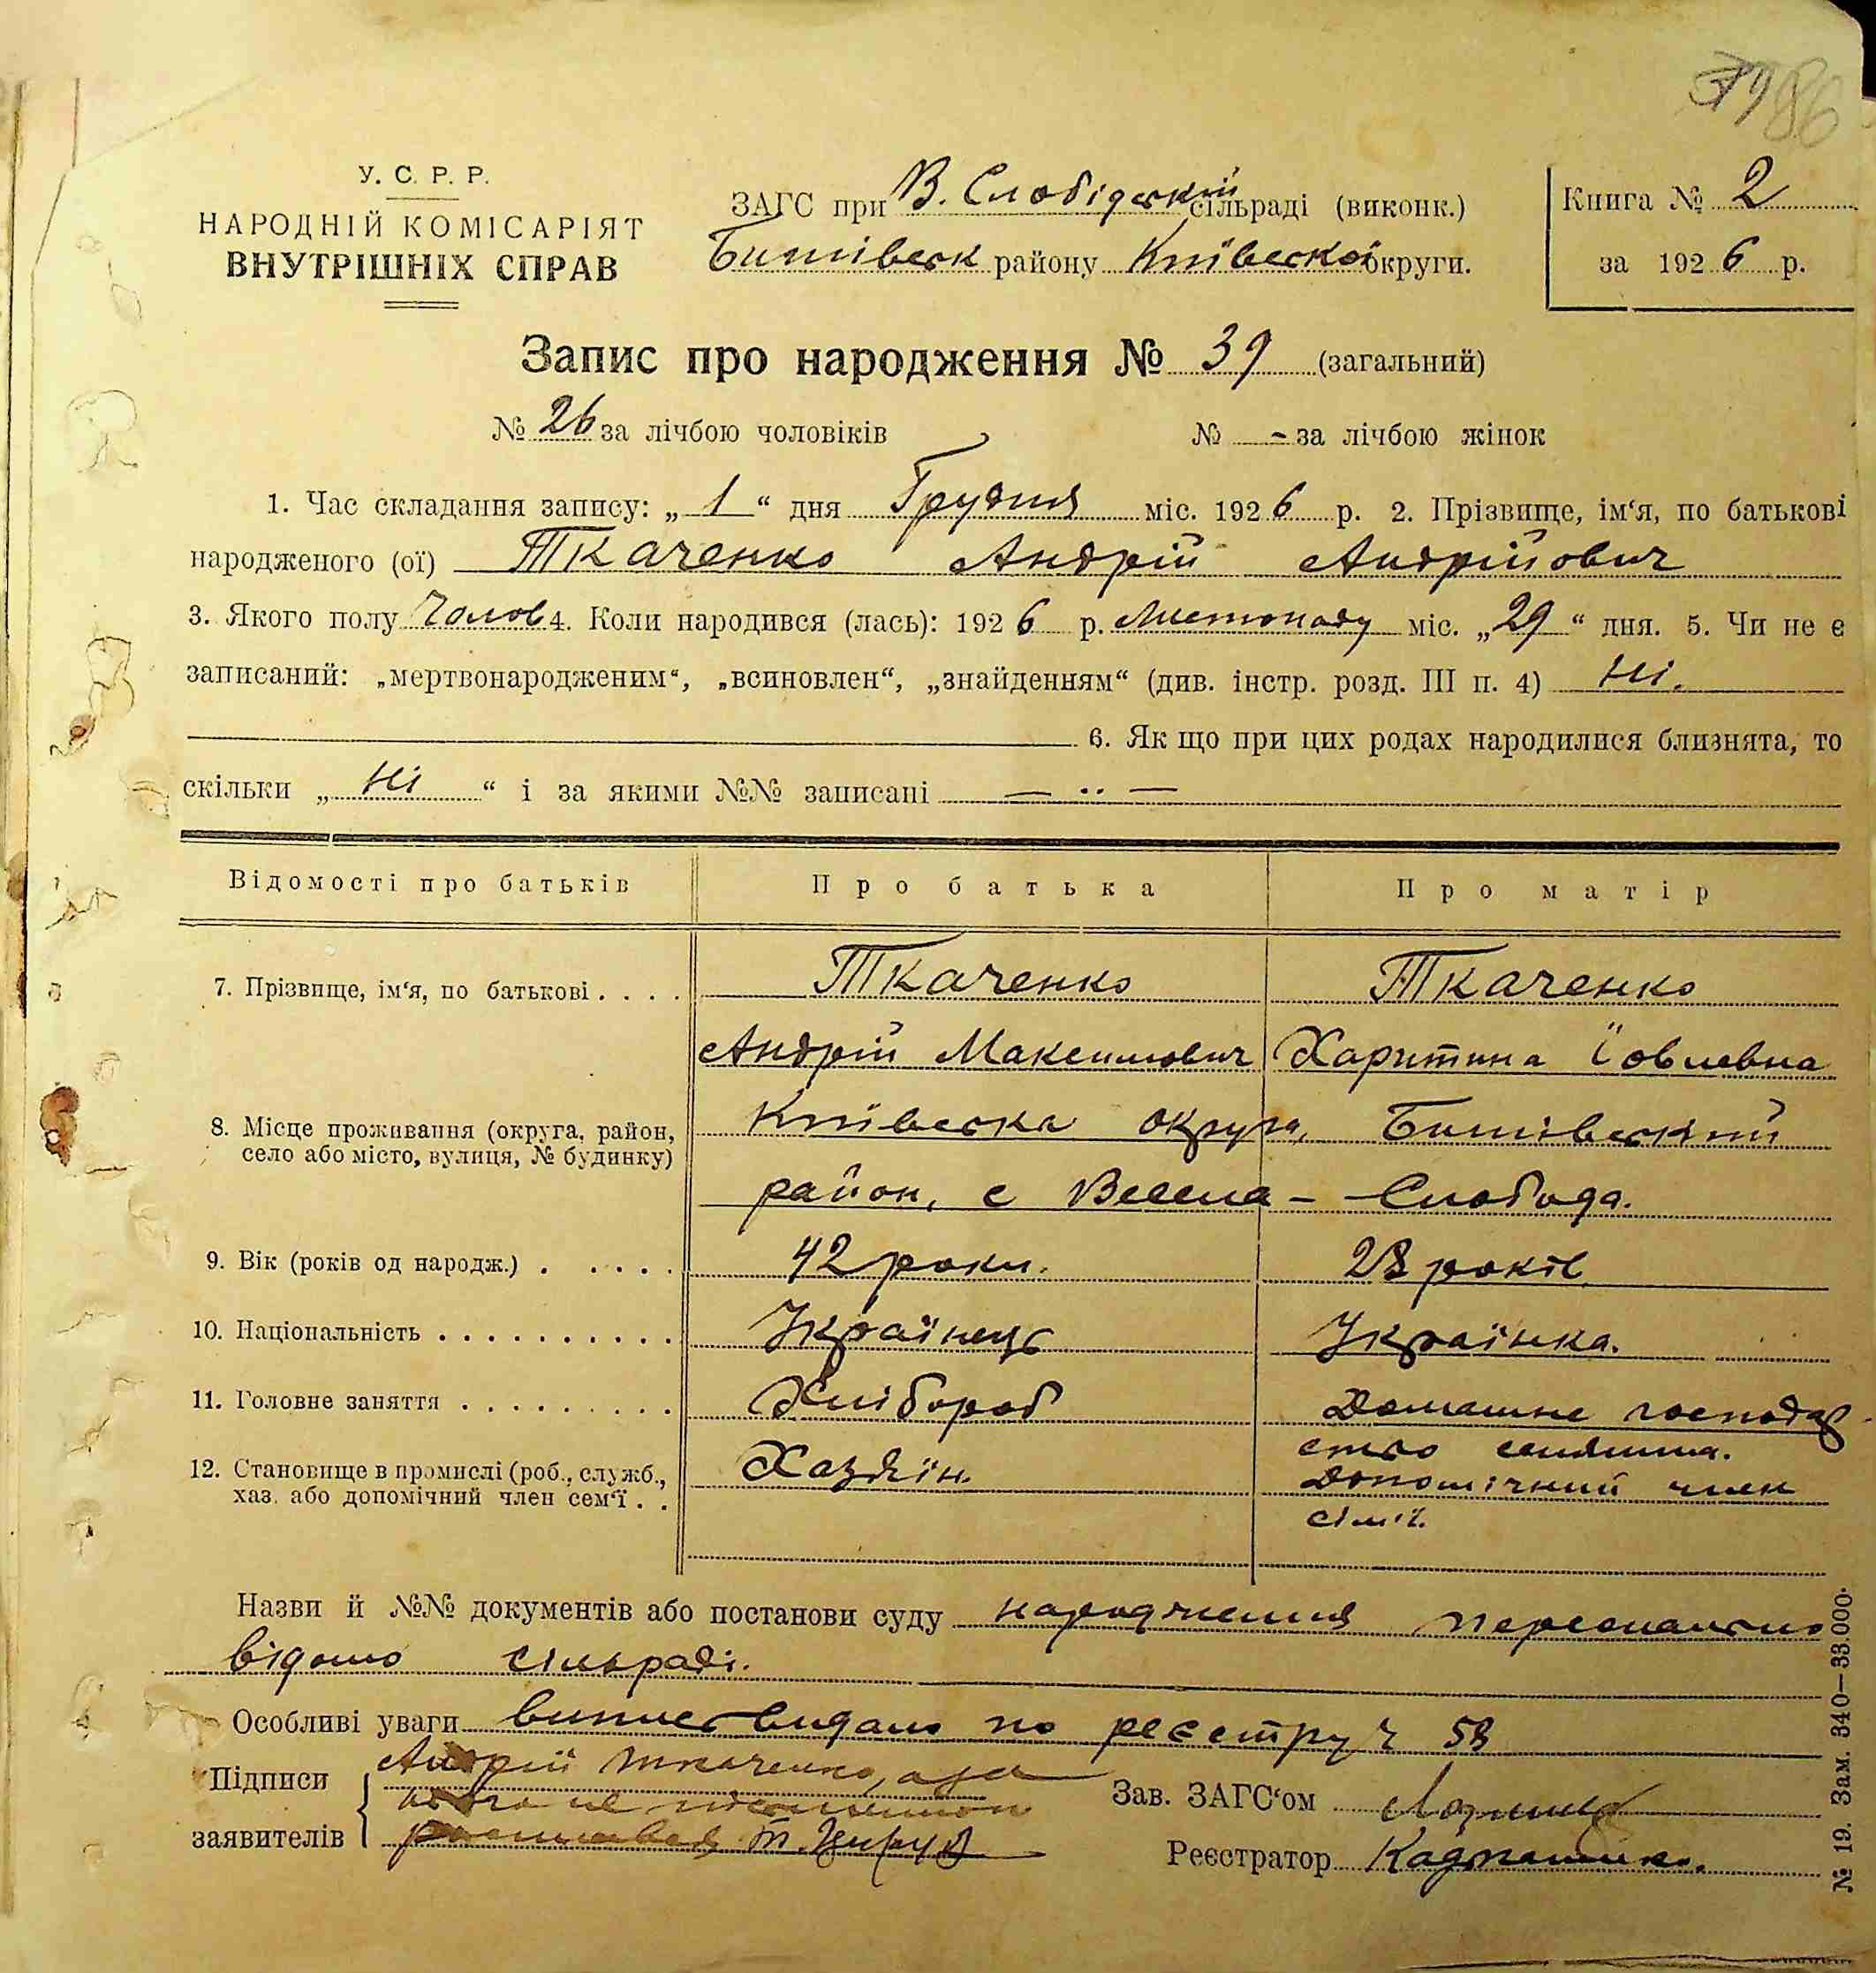 86
У. С. Р. Р.
НАРОДНІЙ КОМІСАРІЯТ
ВНУТРІШНІХ СПРАВ
ЗАГС при В. Слобідській сільраді (виконк.)
Бишівськ району Київської округи.
Книга № 2
за 1926 р.
Запис про народження № 39 (загальний)
№ 26 за лічбою чоловіків № - за лічбою жінок
1. Час складання запису: „1“ дня Грудня міс. 1926 р. 2. Прізвище, ім‘я, по батькові
народженого (ої) Ткаченко Андрій Андрійович
3. Якого полу Чолов 4. Коли народився (лась): 1926 р. Листопаду міс. „29“ дня. 5. Чи не є
записаний: „мертвонародженим“, „всиновлен“, „знайденням“ (див. інстр. розд. III п. 4) Ні.
6. Як що при цих родах народилися близнята, то
скільки „Ні“ і за якими №№ записані — ·· —
Відомості про батьків Про батька Про матір
7. Прізвище, ім‘я, по батькові . . . . Ткаченко Ткаченко
Андрій Максимович Харитина Їовлевна
8. Місце проживання (округа, район, Київська округа, Бишівський
село або місто, вулиця, № будинку)
район, с Весела - Слобода.
9. Вік (років од народж.) . . . . . 42 роки. 28 років
10. Національність . . . . . . . . . . Українець Українка.
11. Головне заняття . . . . . . . . . Хлібороб Домашнє господар
ство
12. Становище в промислі (роб., служб., Хазяїн. Допомічний член
хаз. або допомічний член сем‘ї . . сімї.
Назви й №№ документів або постанови суду народження персонально
відомо сільраді.
Особливі уваги випис видано по реєстру ч 58
Підписи Андрій Ткаченко, а за
заявителів
Зав. ЗАГС‘ом
Реєстратор
№ 19. Зам. 340—33.000·